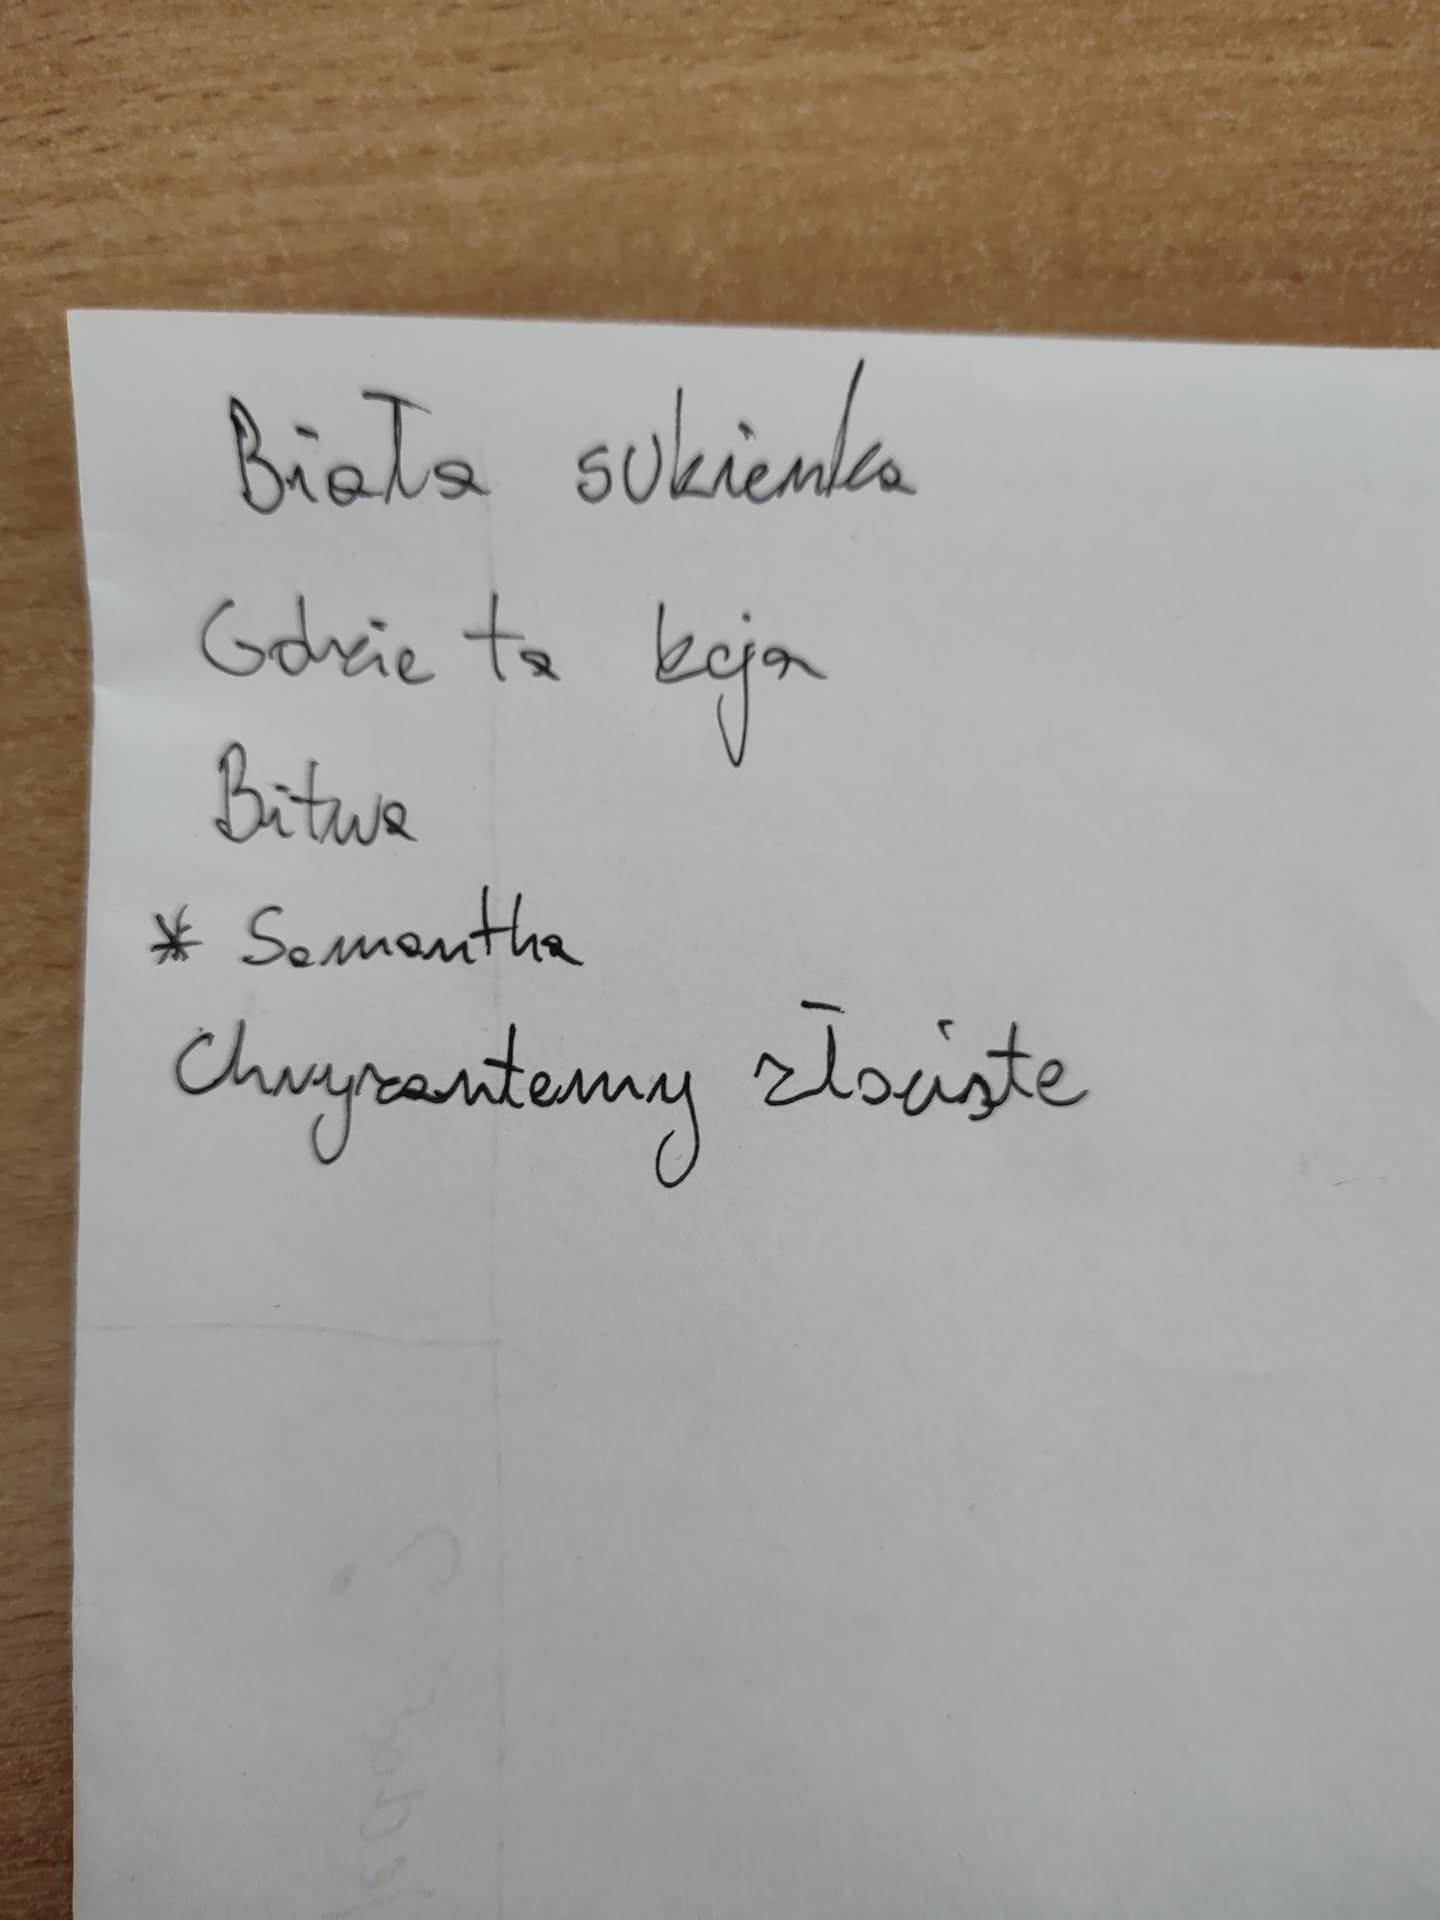 Biała sukienka
Gdzie ta keja
Bitwa
* Samantha
Chryzantemy złociste